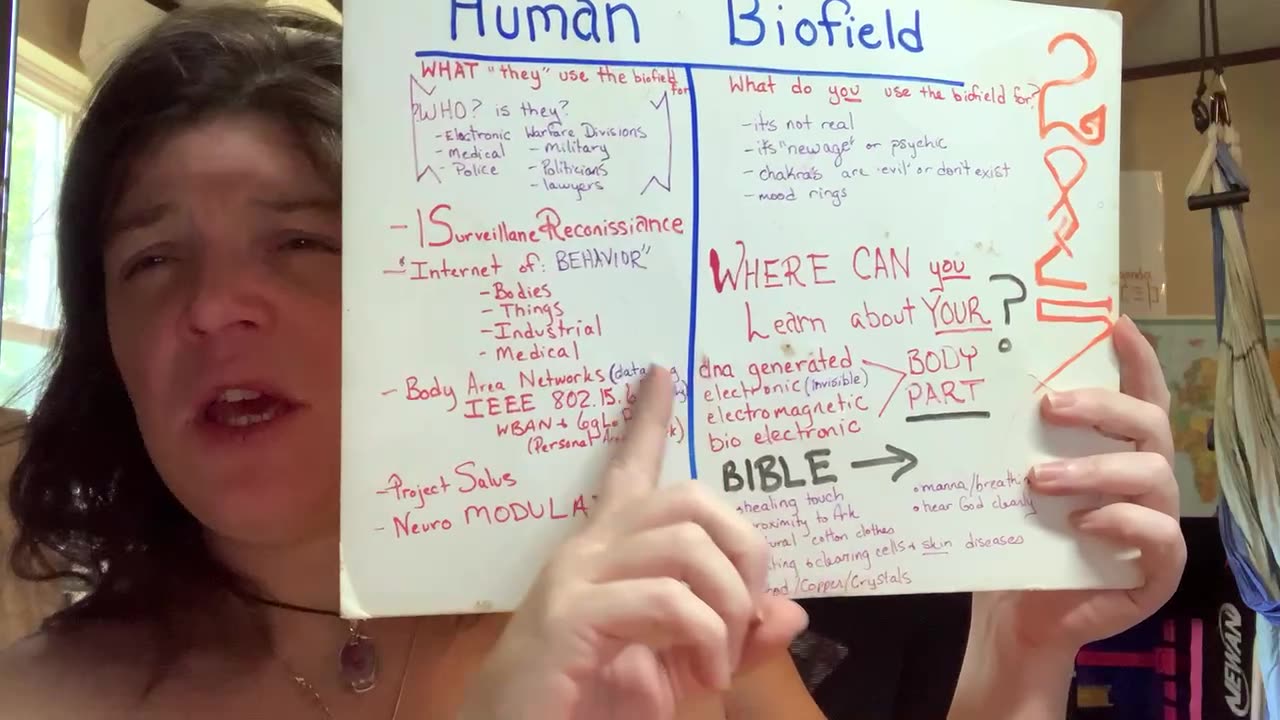 Human Biofield
WHAT "they" use the biofield for
?WHO? is they?
- Electronic Warfare Divisions
- Medical - military
- Police - Politicians
- lawyers
- ISurveillane Reconissiance
- "Internet of: BEHAVIOR"
- Bodies
- Things
- Industrial
- Medical
- Body Area Networks (data
IEEE 802.15.6
WBAN +
(Personal
- Project Salus
- Neuro MODULA
What do you use the biofield for?
- its not real
- its "new age" or psychic
- chakra's are 'evil' or don't exist
- mood rings
WHERE CAN you
Learn about YOUR?
dna generated
electronic (invisible)
electromagnetic
bio electronic
BODY
PART
BIBLE →
healing touch
proximity to Ark
cotton clothes
cells + skin diseases
/Copper/Crystals
• manna/breath
• hear God clearly
NEWAN